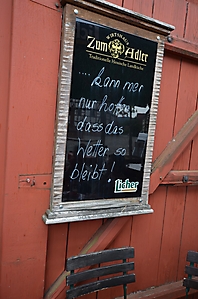 WIRTSHAUS
Zum Adler
Traditionelle Hessische Landküche
.... kann mer
nur hoffe
dass das
Wetter so
bleibt!
Licher